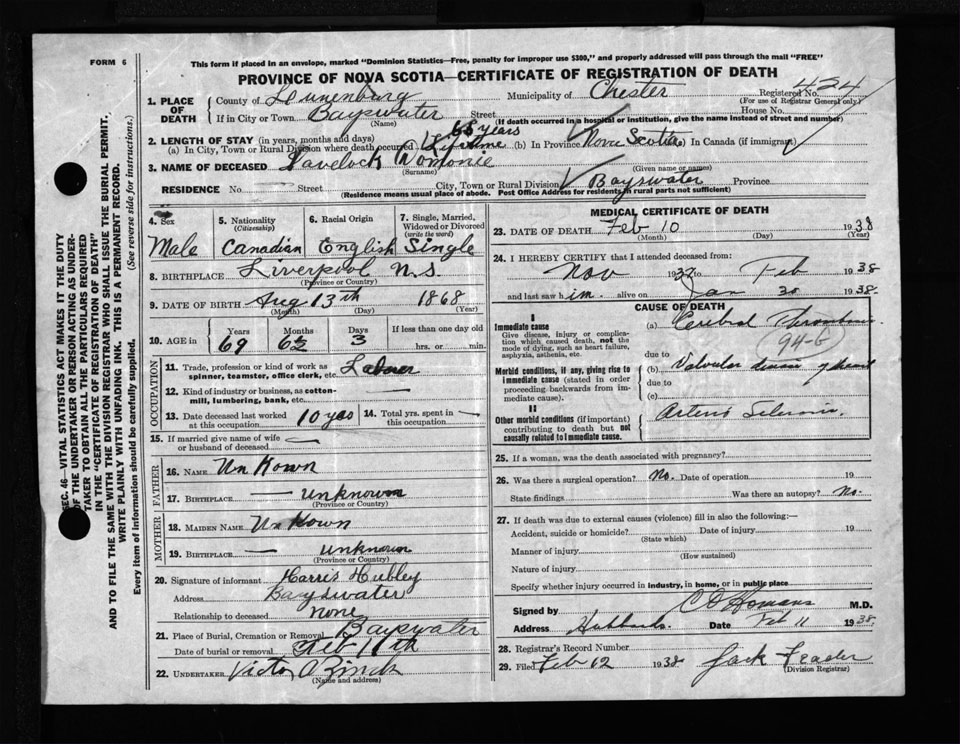 FORM 6
This form if placed in an envelope, marked "Dominion Statistics—Free, penalty for improper use $300," and properly addressed will pass through the mail "FREE"
PROVINCE OF NOVA SCOTIA—CERTIFICATE OF REGISTRATION OF DEATH
1. PLACE OF DEATH { County of Lunenburg Municipality of Chester Registered No. 424
(For use of Registrar General only)
If in City or Town Bayswater Street House No.
(Name) (If death occurred in a hospital or institution, give the name instead of street and number)
2. LENGTH OF STAY (in years, months and days) 63 years
(a) In City, Town or Rural Division where death occurred Lifetime (b) In Province Nova Scotia In Canada (if immigrant)
3. NAME OF DECEASED Lavelock Womonie
(Surname) (Given name or names)
RESIDENCE No Street City, Town or Rural Division Bayswater Province
(Residence means usual place of abode. Post Office Address for residents in rural parts not sufficient)
4. Sex Male
5. Nationality (Citizenship) Canadian
6. Racial Origin English
7. Single, Married, Widowed or Divorced (write the word) Single
8. BIRTHPLACE Liverpool N.S.
(Province or Country)
9. DATE OF BIRTH Aug 13th 1868
(Month) (Day) (Year)
10. AGE in Years 69 Months Days 3 If less than one day old
hrs. or min.
OCCUPATION
11. Trade, profession or kind of work as spinner, teamster, office clerk, etc.
12. Kind of industry or business, as cotton-mill, lumbering, bank, etc.
13. Date deceased last worked at this occupation 10 yrs
14. Total yrs. spent in this occupation
15. If married give name of wife or husband of deceased
FATHER
16. NAME Un Kown
17. BIRTHPLACE unknown
(Province or Country)
MOTHER
18. MAIDEN NAME Un Kown
19. BIRTHPLACE unknown
(Province or Country)
20. Signature of informant Harris Hubley
Address Bayswater
Relationship to deceased none
21. Place of Burial, Cremation or Removal Bayswater
Date of burial or removal Feb 11th
22. UNDERTAKER Victor A Zinck
(Name and address)
MEDICAL CERTIFICATE OF DEATH
23. DATE OF DEATH Feb 10 1938
(Month) (Day) (Year)
24. I HEREBY CERTIFY that I attended deceased from:
Nov 1937 to Feb 1938
and last saw him alive on Jan 30 1938.
CAUSE OF DEATH
I
Immediate cause
Give disease, injury or complication which caused death, not the mode of dying, such as heart failure, asphyxia, asthenia, etc.
(a) Cerebral Thrombosis
94-B
due to
Morbid conditions, if any, giving rise to immediate cause (stated in order proceeding backwards from immediate cause).
(b) Valvular disease of heart
due to
(c)
II
Other morbid conditions (if important) contributing to death but not causally related to immediate cause.
Arterio Sclerosis.
25. If a woman, was the death associated with pregnancy?
26. Was there a surgical operation? No. Date of operation 19
State findings Was there an autopsy? No.
27. If death was due to external causes (violence) fill in also the following:—
Accident, suicide or homicide? Date of injury 19
(State which)
Manner of injury
(How sustained)
Nature of injury
Specify whether injury occurred in industry, in home, or in public place
Signed by C O Homans M.D.
Address Hubbards Date Feb 11 1938.
28. Registrar's Record Number
29. Filed Feb 12 1938 Jack Feader
(Division Registrar)
SEC. 46—VITAL STATISTICS ACT MAKES IT THE DUTY OF THE UNDERTAKER OR PERSON ACTING AS UNDERTAKER TO OBTAIN ALL THE PARTICULARS REQUIRED IN THE "CERTIFICATE OF REGISTRATION OF DEATH" AND TO FILE THE SAME WITH THE DIVISION REGISTRAR WHO SHALL ISSUE THE BURIAL PERMIT.
WRITE PLAINLY WITH UNFADING INK. THIS IS A PERMANENT RECORD.
Every item of information should be carefully supplied. (See reverse side for instructions.)